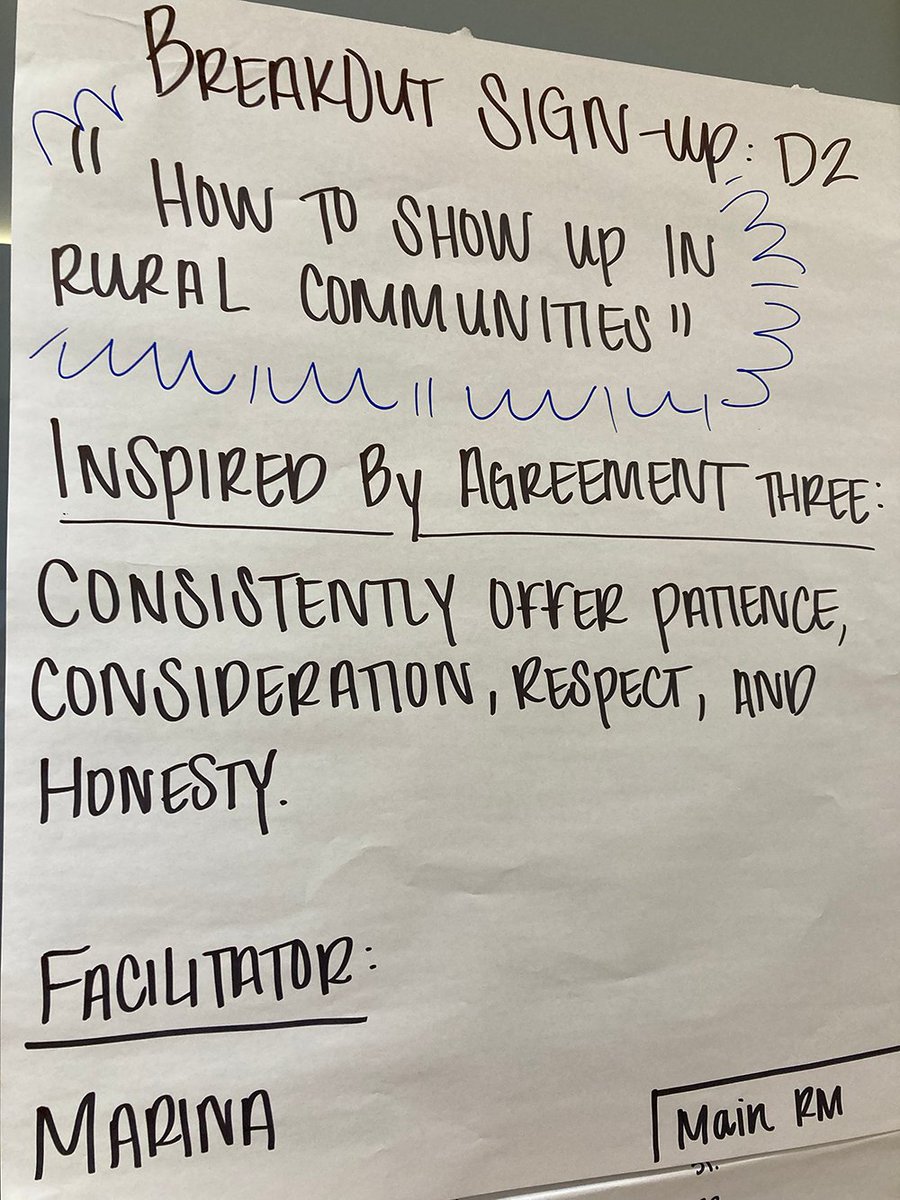 BREAKOUT SIGN-UP: D2
"HOW TO SHOW UP IN
RURAL COMMUNITIES"
INSPIRED BY AGREEMENT THREE:
CONSISTENTLY OFFER PATIENCE,
CONSIDERATION, RESPECT, AND
HONESTY.
FACILITATOR:
MARINA
Main RM